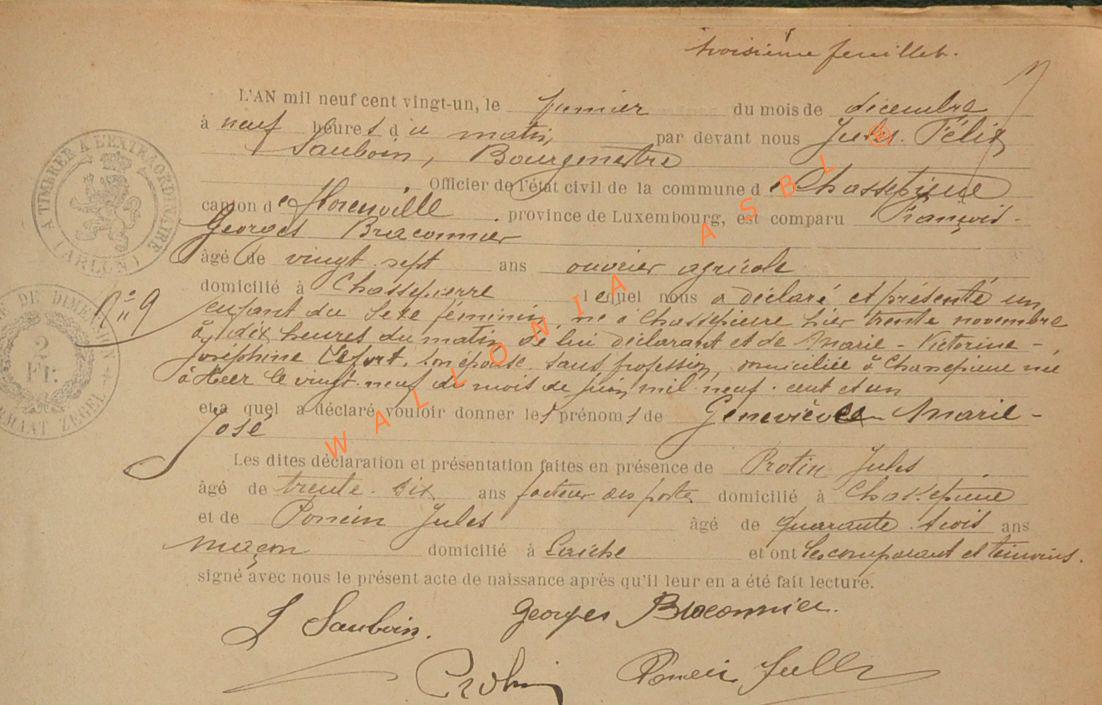 troisième feuillet.
L'AN mil neuf cent vingt-un, le premier du mois de décembre
à neuf heures du matin, par devant nous Jules Félix
Sauboin, Bourgmestre
Officier de l'état civil de la commune de Chassepierre
canton de Florenville province de Luxembourg, est comparu François-
Georges Braconnier
âgé de vingt sept ans ouvrier agricole
domicilié à Chassepierre lequel nous a déclaré et présenté un
enfant du sexe féminin né à Chassepierre hier trente novembre
à dix heures du matin de lui déclarant et de Marie-Victorine-
Joséphine Lefort, son épouse sans profession, domiciliée à Chassepierre née
à Heer le vingt-neuf du mois de juin mil neuf cent et un
et a quel a déclaré vouloir donner les prénoms de Geneviève Marie-
José
Les dites déclaration et présentation faites en présence de Protin Jules
âgé de trente-six ans facteur des postes domicilié à Chassepierre
et de Poncin Jules âgé de quarante-trois ans
maçon domicilié à Laiche et ont les comparant et témoins
signé avec nous le présent acte de naissance après qu'il leur en a été fait lecture.
J Sauboin. Georges Braconnier.
Protin Poncin Jules
N° 9
A TIMBRER A L'EXTRAORDINAIRE
(ARLON)
2
Fr.
WALLONIA ASBL ©